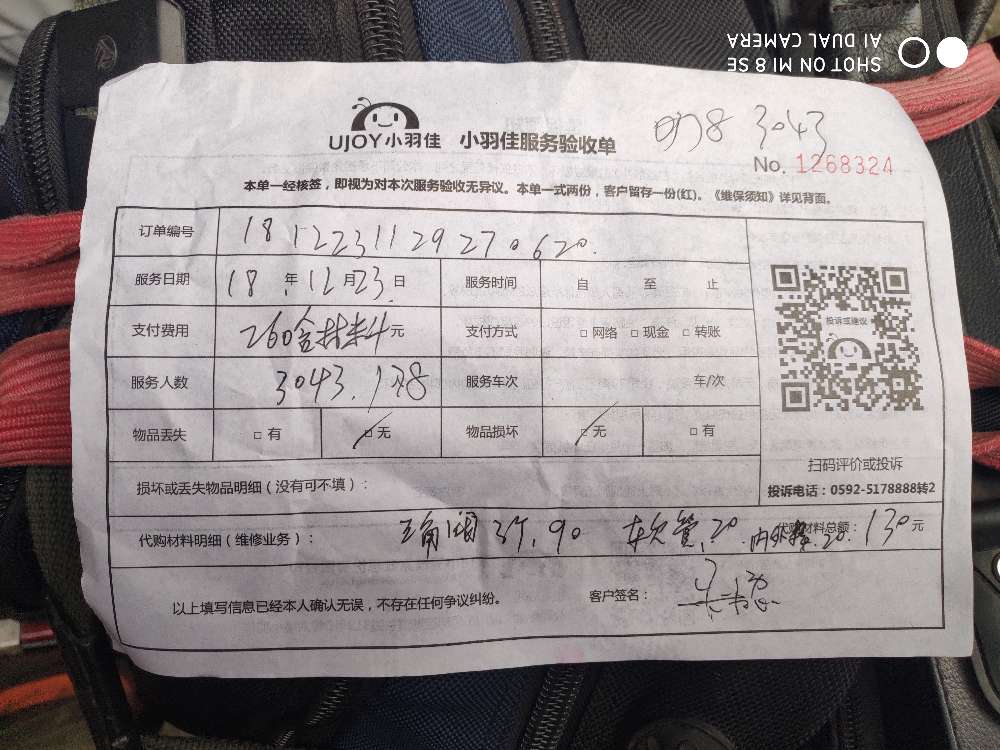 SHOT ON MI 8 SE
AI DUAL CAMERA
UJOY小羽佳 小羽佳服务验收单
3043
No. 1268324
本单一经核签，即视为对本次服务验收无异议。本单一式两份，客户留存一份(红)。《维保须知》详见背面。
订单编号 1812231129270620.
服务日期 18年.12月23.日 服务时间 自 至 止
支付费用 260含材料元 支付方式 □网络 □现金 □转账
服务人数 3043.138 服务车次 车/次
物品丢失 □有 □无 物品损坏 □无 □有
投诉或建议
扫码评价或投诉
投诉电话：0592-5178888转2
损坏或丢失物品明细（没有可不填）：
代购材料明细（维修业务）： 三角阀3个.90 软管.20.内外接.20. 代购材料总额：130元
以上填写信息已经本人确认无误，不存在任何争议纠纷。 客户签名：